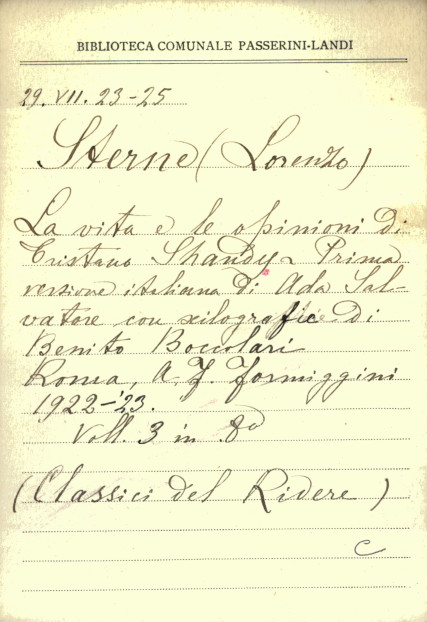 BIBLIOTECA COMUNALE PASSERINI-LANDI
29. VII. 23-25
Sterne (Lorenzo)
La vita e le opinioni di
Tristano Shandy - Prima
versione italiana di Ada Sal-
vatore con xilografie di
Benito Boccolari
Roma, A. F. Formiggini
1922-'23.
Voll. 3 in 8º
(Classici del Ridere)
C